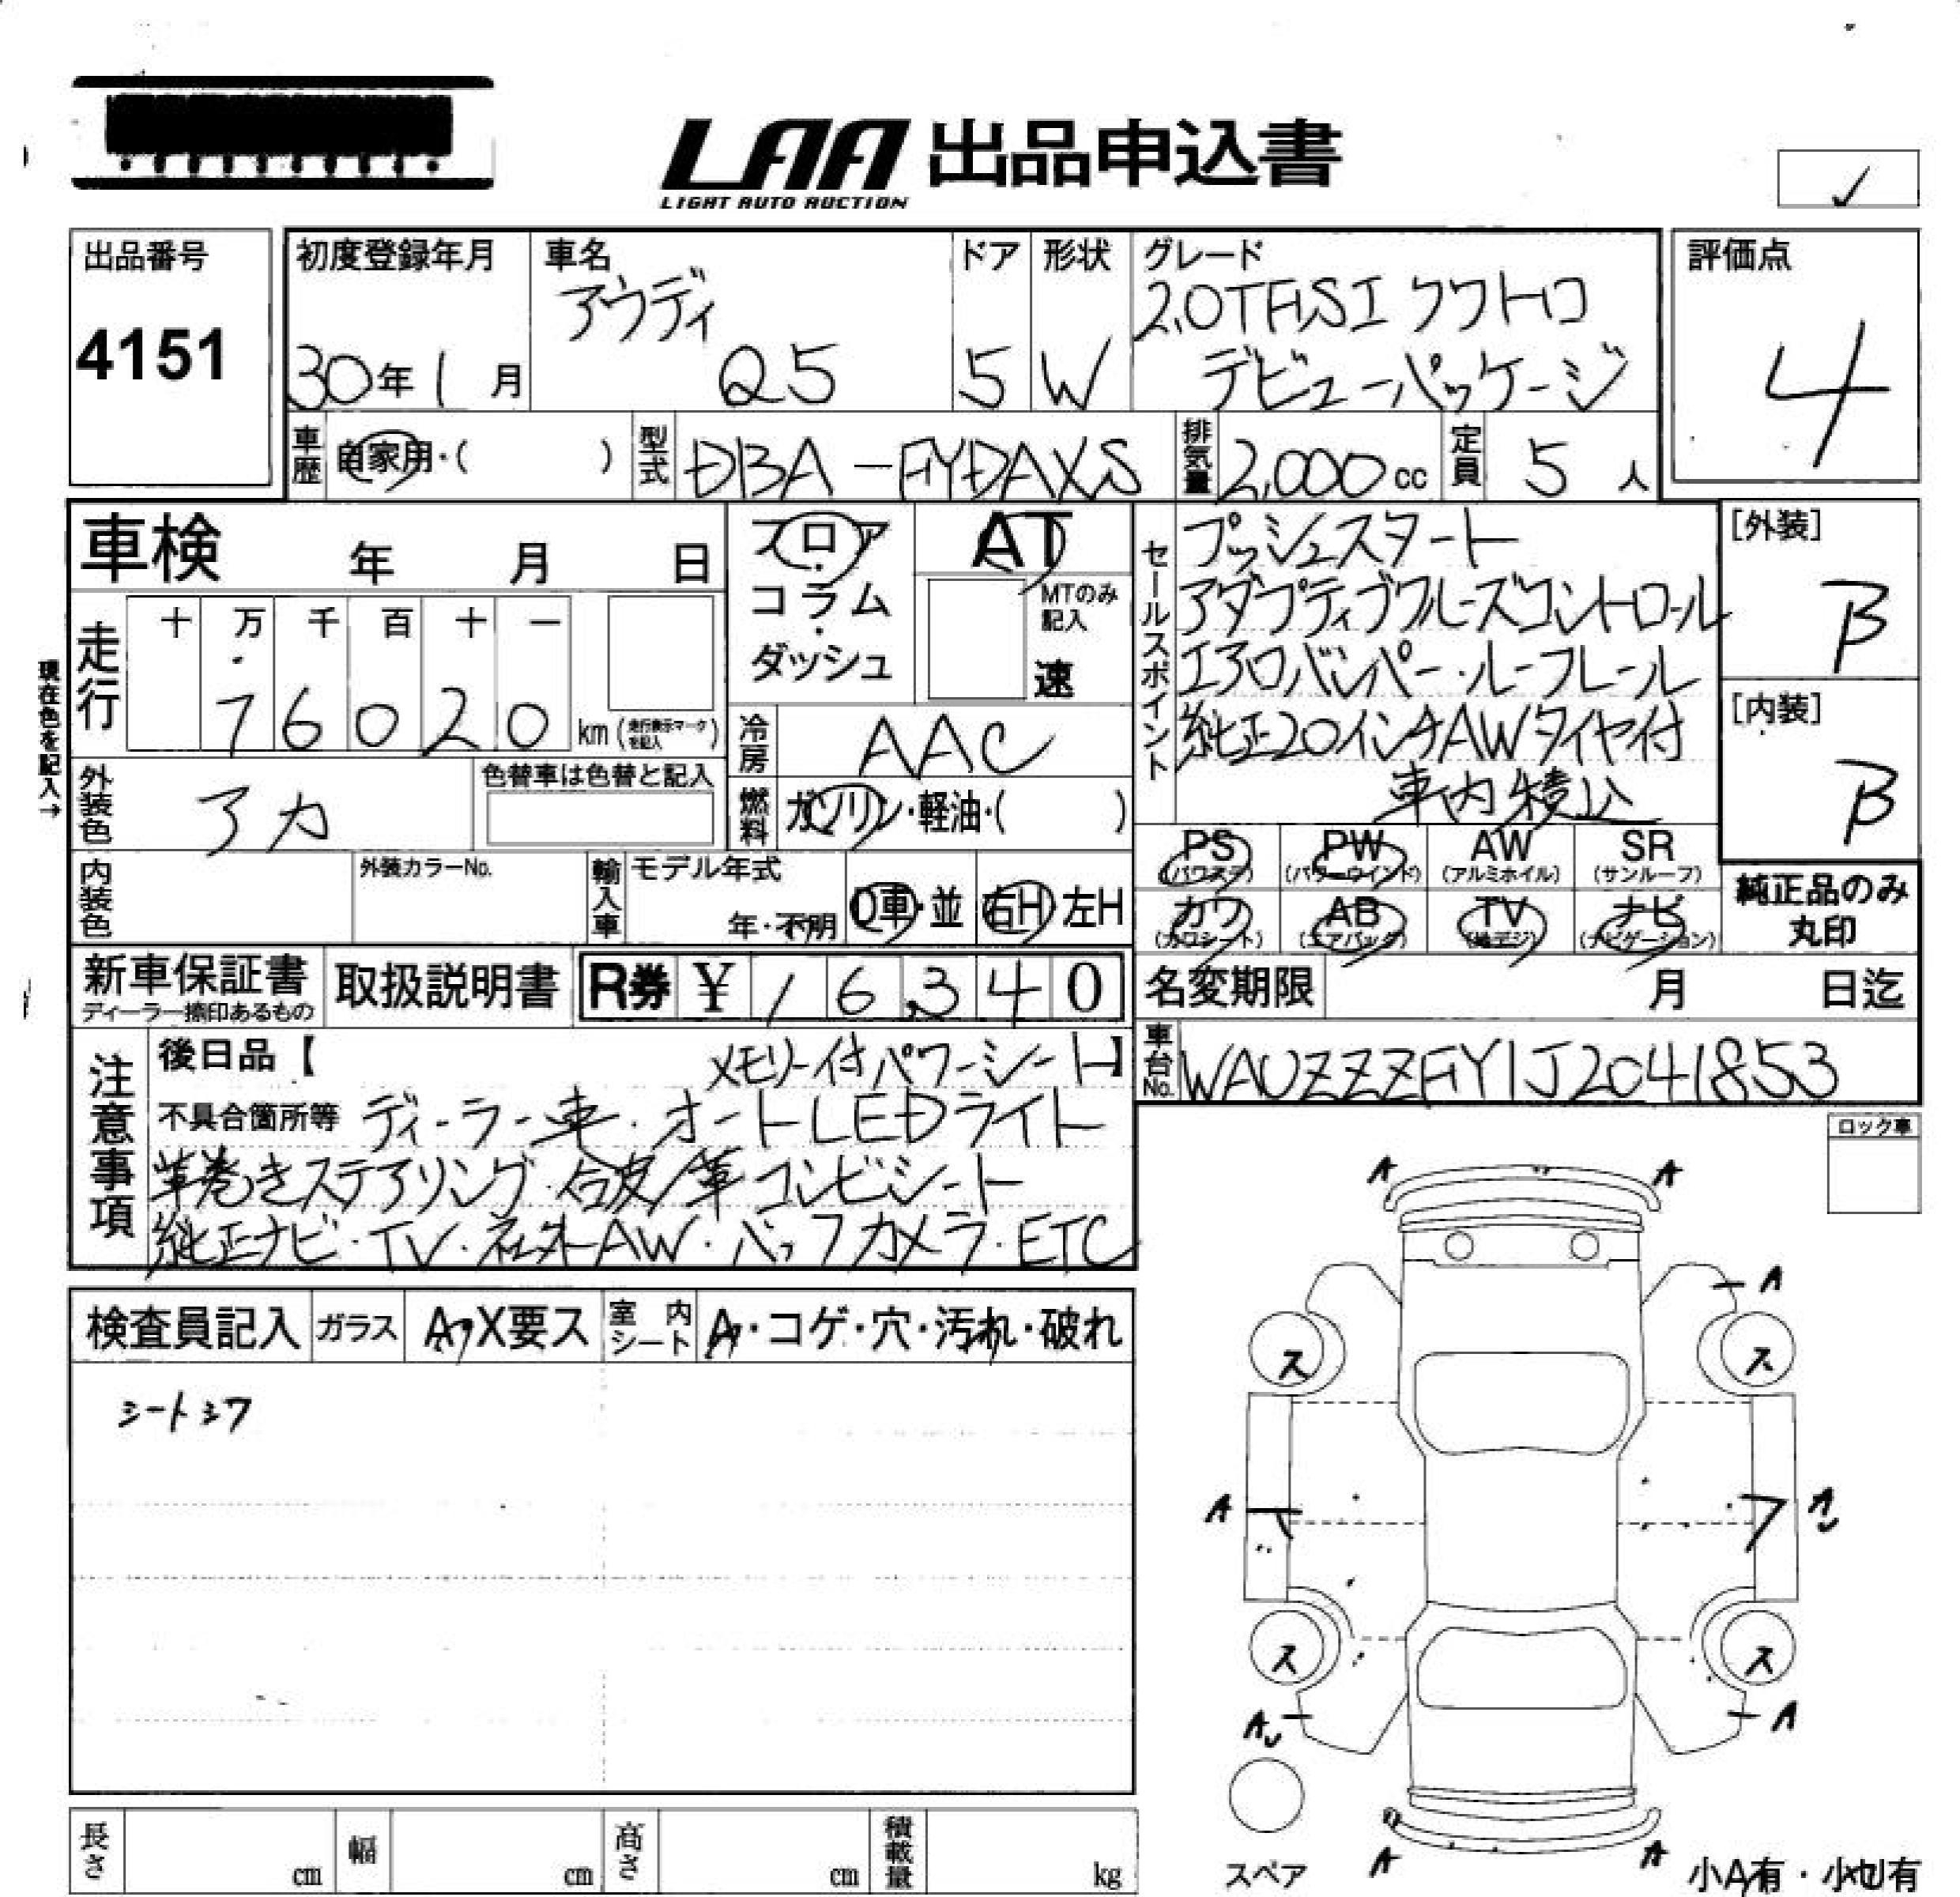 LAA 出品申込書
LIGHT AUTO AUCTION
✓
出品番号
4151
初度登録年月
30年 1月
車名
アウディ
Q5
ドア
5
形状
W
グレード
2.0TFSI クワトロ
デビューパッケージ
評価点
4
車歴 自家用・( )
型式 DBA-FYDAXS
排気量 2,000cc
定員 5人
車検 年 月 日
フロア・コラム・ダッシュ
AT
MTのみ記入
速
走行
十 万 千 百 十 一
76020 km (走行表示マークを記入)
現在色を記入→
外装色 アカ
色替車は色替と記入
冷房 AAC
燃料 ガソリン・軽油・( )
内装色
外装カラーNo.
輸入車 モデル年式
年・不明
D車・並
右H 左H
セールスポイント
プッシュスタート
アダプティブクルーズコントロール
エアロバンパー・ルーフレール
純正20インチAWタイヤ付
車内積込
[外装]
B
[内装]
B
PS (パワステ) PW (パワーウインド) AW (アルミホイル) SR (サンルーフ)
カワ (カワシート) AB (エアバック) TV (地デジ) ナビ (ナビゲーション)
純正品のみ
丸印
新車保証書
ディーラー捺印あるもの
取扱説明書
R券 ¥ 16,340
名変期限 月 日迄
車台No. WAUZZZFY1J2041853
注意事項
後日品【 メモリー付パワーシート】
不具合箇所等 ディーラー車・オートLEDライト
革巻きステアリング・合皮/革コンビシート
純正ナビ・TV・社外AW・バックカメラ・ETC
検査員記入 ガラス A・X要ス 室内シート A・コゲ・穴・汚れ・破れ
シートシワ
ロック車
A A
A
ス ス
A A
ス ス
A A
A A
スペア
小A有・小U有
長さ cm 幅 cm 高さ cm 積載量 kg